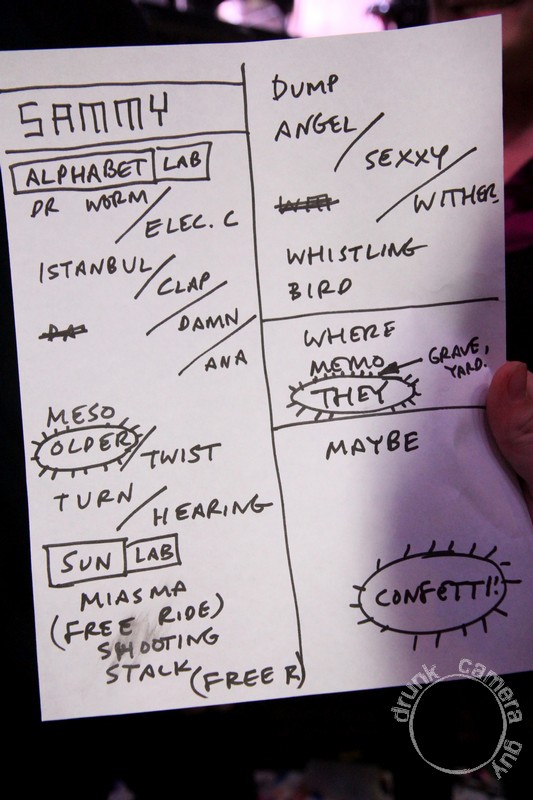 SAMMY
ALPHABET LAB
DR WORM /
ELEC. C
ISTANBUL /
CLAP /
DAMN /
ANA
MESO
OLDER /
TWIST
TURN /
HEARING
SUN LAB
MIASMA
(FREE RIDE)
SHOOTING
STALK (FREE R)
DUMP
ANGEL /
SEXXY /
WITHER
WHISTLING
BIRD
WHERE
MEMO
GRAVE,
YARD.
THEY
MAYBE
CONFETTI!
drunk camera guy